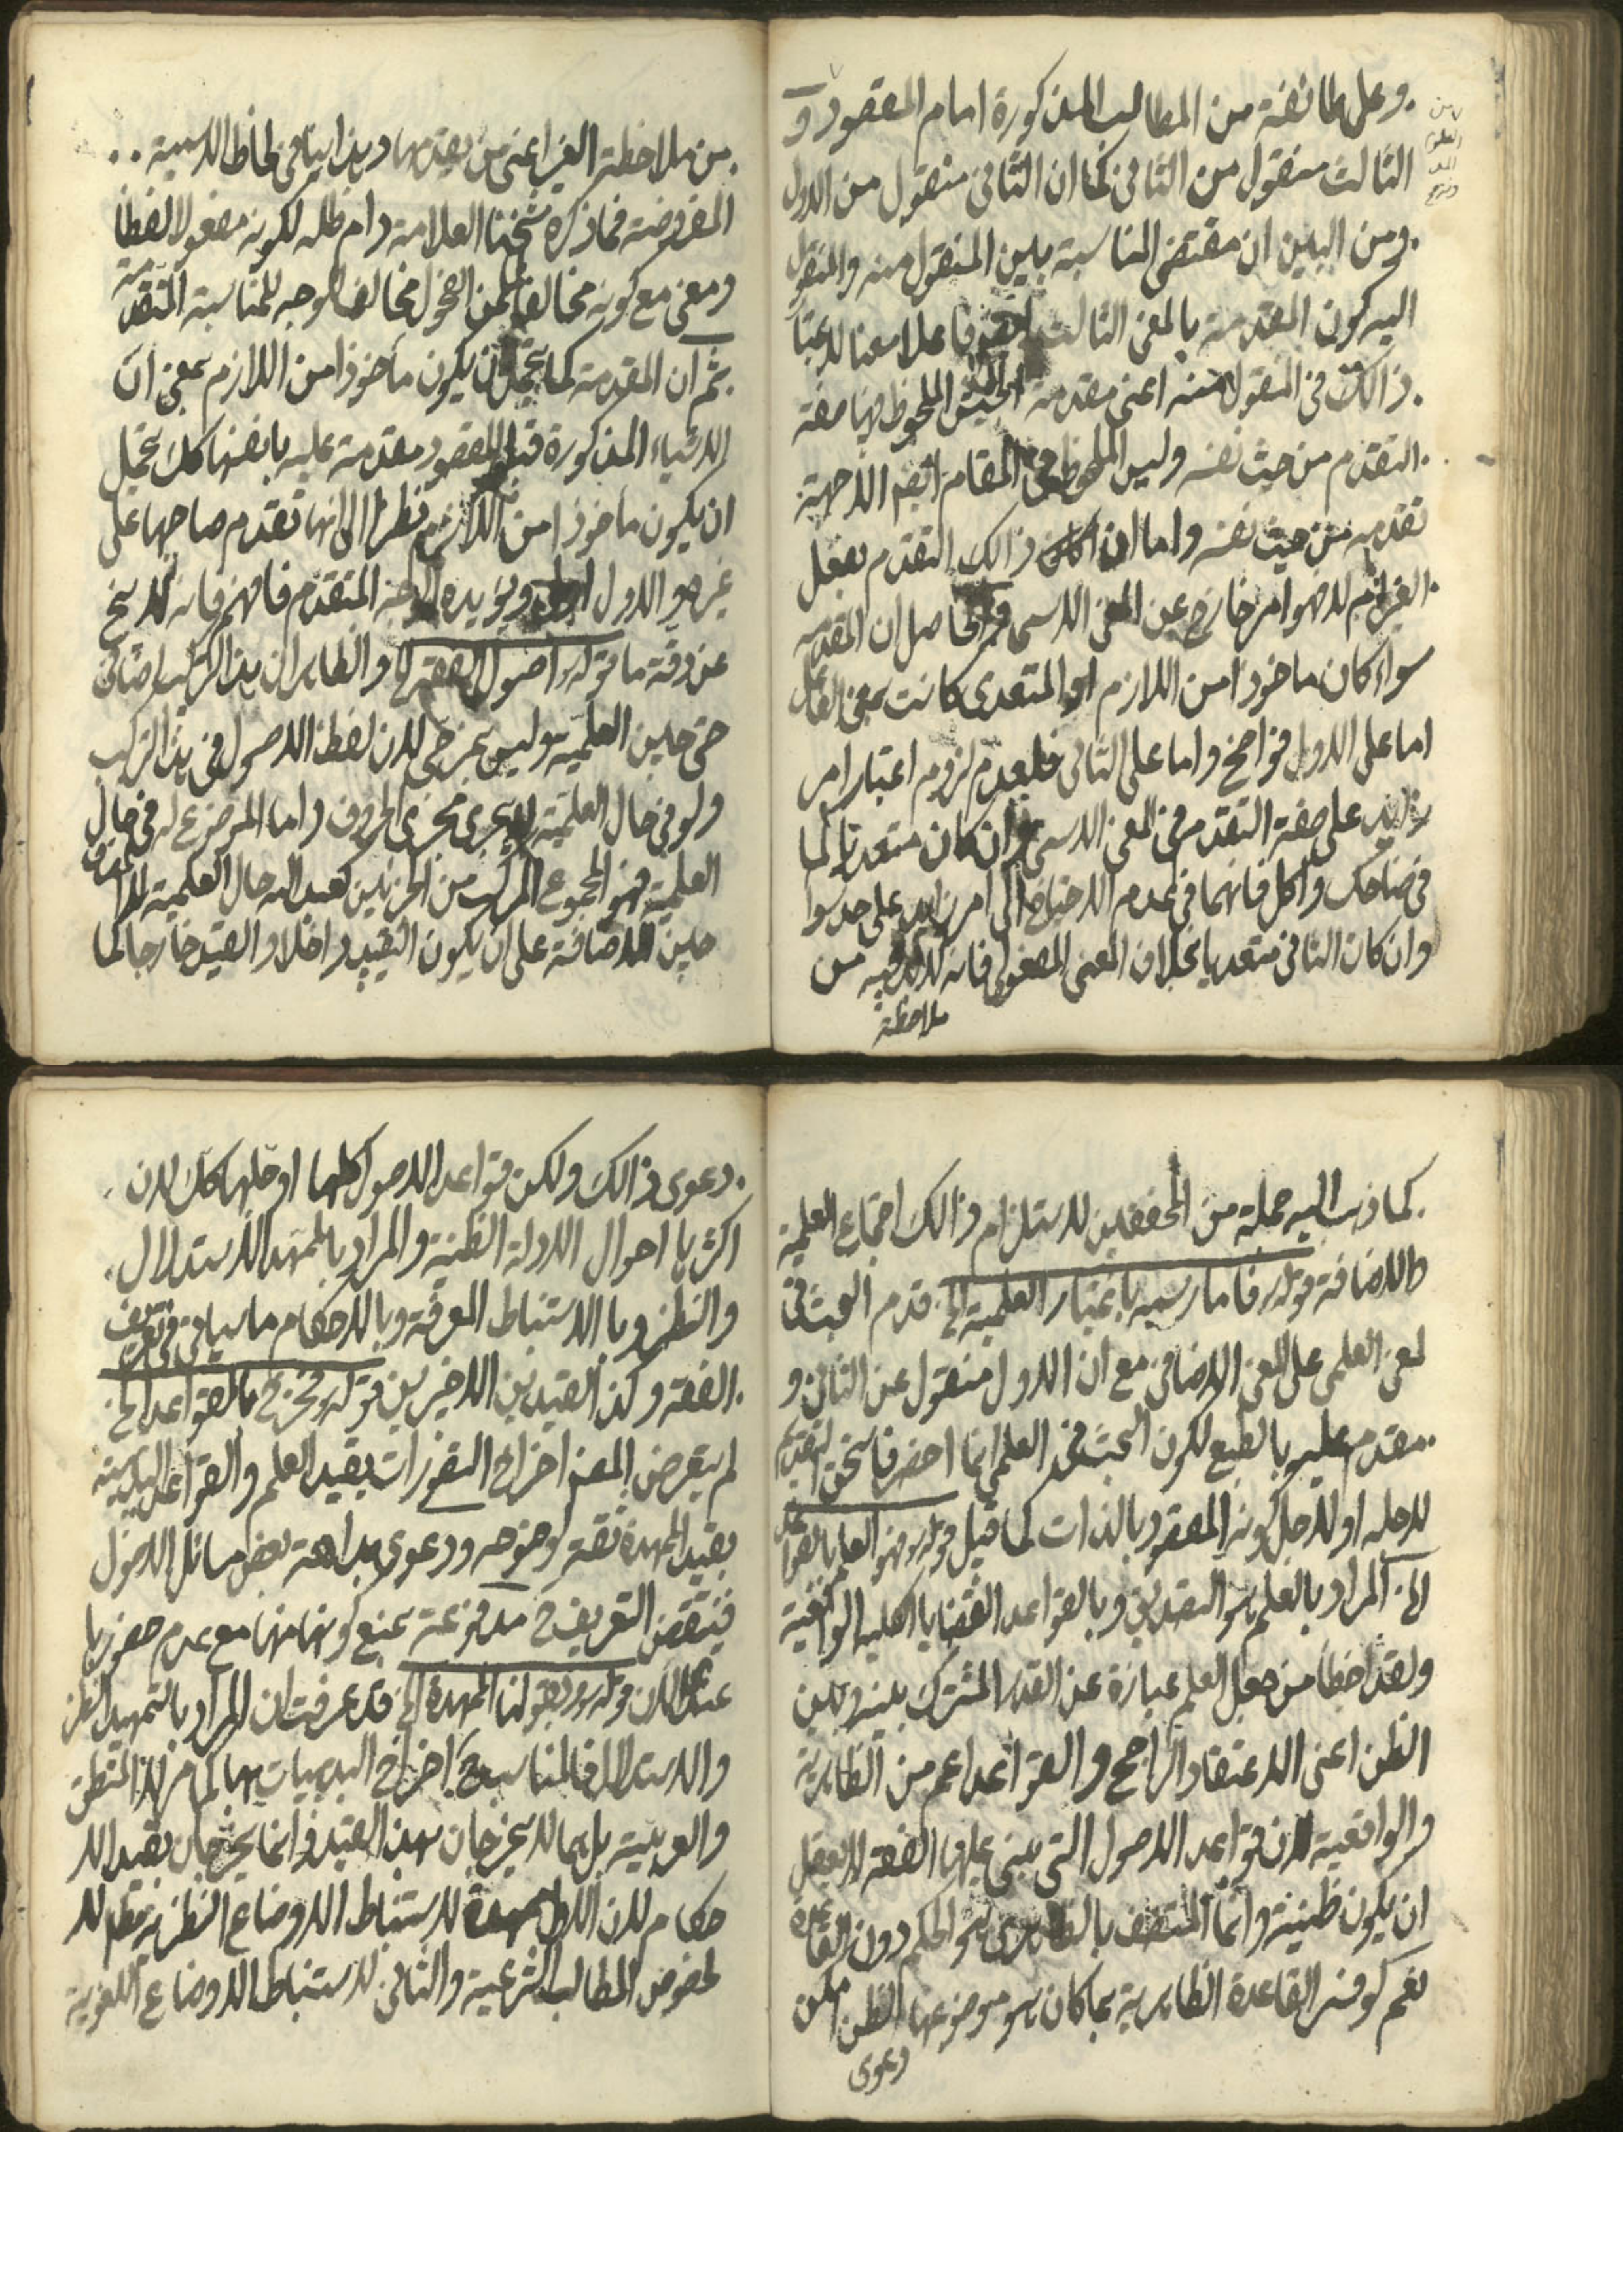 وعلى طائفة من المطالب المذكورة امام المقصود و
الثالث منقول من الثاني كما ان الثاني منقول من الاول
ومن البين ان مقتضى المناسبة بين المنقول منه والمنقول
اليه كون المقدمة بالمعنى الثالث فاعلا معنا لاعتبار
ذالك في المنقول منه اعنى مقدمة الجيش الملحوظ فيها صفة
التقدم من حيث نفسه وليس الملحوظ في المقام ايضا الا جهة
تقدمه من حيث نفسه واما ان كان ذالك التقدم بفعل
الغير ام لا فهو امر خارج عن المعنى الاسمي والحاصل ان المقدمة
سواء كان ماخوذا من اللازم او المتعدي كانت بمعنى الفاعل
اما على الاول فواضح واما على الثاني فلعدم لزوم اعتبار امر
زايد على صفة التقدم في المعنى الاسمي وان كان متعديا كما
في ضاحك واكل فانهما في عدم الاحتياج الى امر زايد على حد سواء
وان كان الثاني متعديا بخلاف المعنى المفعولي فانه لابد فيه من
ملاحظة
من ملاحظة الغير اعنى من يقدمها وهذا ينافي لحاظ الاسمية
المفروضة فما ذكره شيخنا العلامة دام ظله لكونه مفعولا لفظا
ومعنى مع كونه مخالفا لمن الفحول مخالفا لوجه المناسبة المتقدمة
ثم ان المقدمة كما يحتمل ان يكون مأخوذا من اللازم بمعنى ان
الاشياء المذكورة قبل المقصود مقدمة عليه بانفسها كك يحتمل
ان يكون ماخوذا من اللازم نظرا الى انها تقدم صاحبها على
غيره والاول اولى ويؤيده الوجه المتقدم فافهم فانه لا يخ
عن دقة ما قوله اصول الفقه الخ والظاهر ان هذا التركيب اضافي
حتى حين العلمية وليس بمزجي لان لفظ الاصول في هذا التركيب
ولو في حال العلمية لا يجري مجرى الحروف واما الموضوع له في حال
العلمية فهو المجموع المركب من الجزئين كعبد الله حال العلمية
حين الاضافة على ان يكون التقييد داخلا والقيد خارجا كما
كما ذهب اليه جملة من المحققين لاستلزام ذالك اجتماع العلمية
والاضافة قوله فاما رسمه باعتبار العلمية الخ قدم البحث في
المعنى العلمي على المعنى الاضافي مع ان الاول منقول عن الثاني و
مقدم عليه بالطبع لكون البحث في العلمي انما احضر فاستحق التقديم
لاجله او لاجل كونه المقصود بالذات كما قيل قوله فهو العلم بالقواعد
الخ المراد بالعلم هو التصديق وبالقواعد القضايا الكلية الواقعية
ولقد اخطأ من جعل العلم عبارة عن القدر المشترك بينه وبين
الظن اعنى الاعتقاد الراجح والقواعد اعم من الظاهرية
والواقعية لان قواعد الاصول التي يبنى عليها الفقه لا يعقل
ان يكون ظنية وانما المتصف بالظاهري هو الحكم دون القاعدة
نعم لو فسر القاعدة الظاهرية بما كان هو موضوعها الظن امكن
دعوى
دعوى ذالك ولكن قواعد الاصول كلها او جلها كك لان
اكثرها احوال الادلة الظنية والمراد بالتمهيد الاستدلال
والنظر وبالاستنباط المعرفة وبالاحكام ما سيأتي في تعريف
الفقه وكذا القيدين الاخيرين قوله فخرج بالقواعد الخ
لم يتعرض المص اخراج التصورات بقيد العلم والقواعد البديهية
بقيد الممهدة ثقة لوضوحه ودعوى بداهة بعض مسائل الاصول
فينتقض التعريف ح مدفوعة بمنع كونها منها مع عدم حضورها
عندي الان قوله وبقولنا الممهدة الخ قد عرفت ان المراد بالتمهيد النظر
والاستدلال فالمناسب ح اخراج البديهيات بها كما مر لا المنطق
والعربية بل هما لا يخرجان بهذا القيد وانما يخرجان بقيد الا
حكام لان الاول ممهدة لاستنباط الاوضاع النظرية مطلقا لا
لخصوص المطالب الشرعية والثاني لاستنباط الاوضاع اللغوية